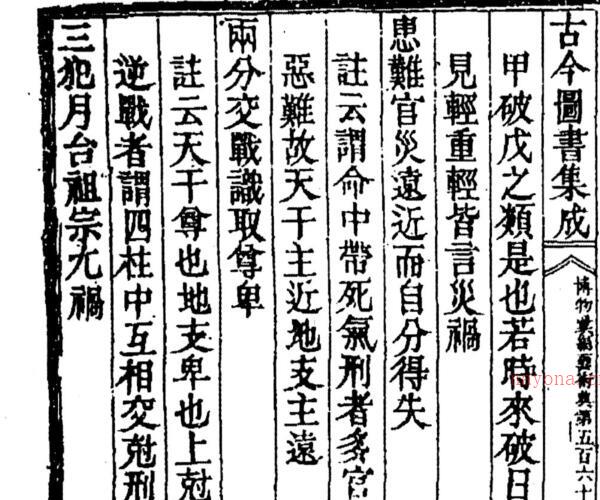 古今圖書集成
博物彙編藝術典第五百六十
甲破戊之類是也若時來破日
見輕重輕皆言災禍
患難官災遠近而自分得失
註云謂命中帶死氣刑者多官
惡難故天干主近地支主遠
兩分交戰識取尊卑
註云天干尊也地支卑也上尅
逆戰者謂四柱中互相交尅刑
三犯月台祖宗尢禍